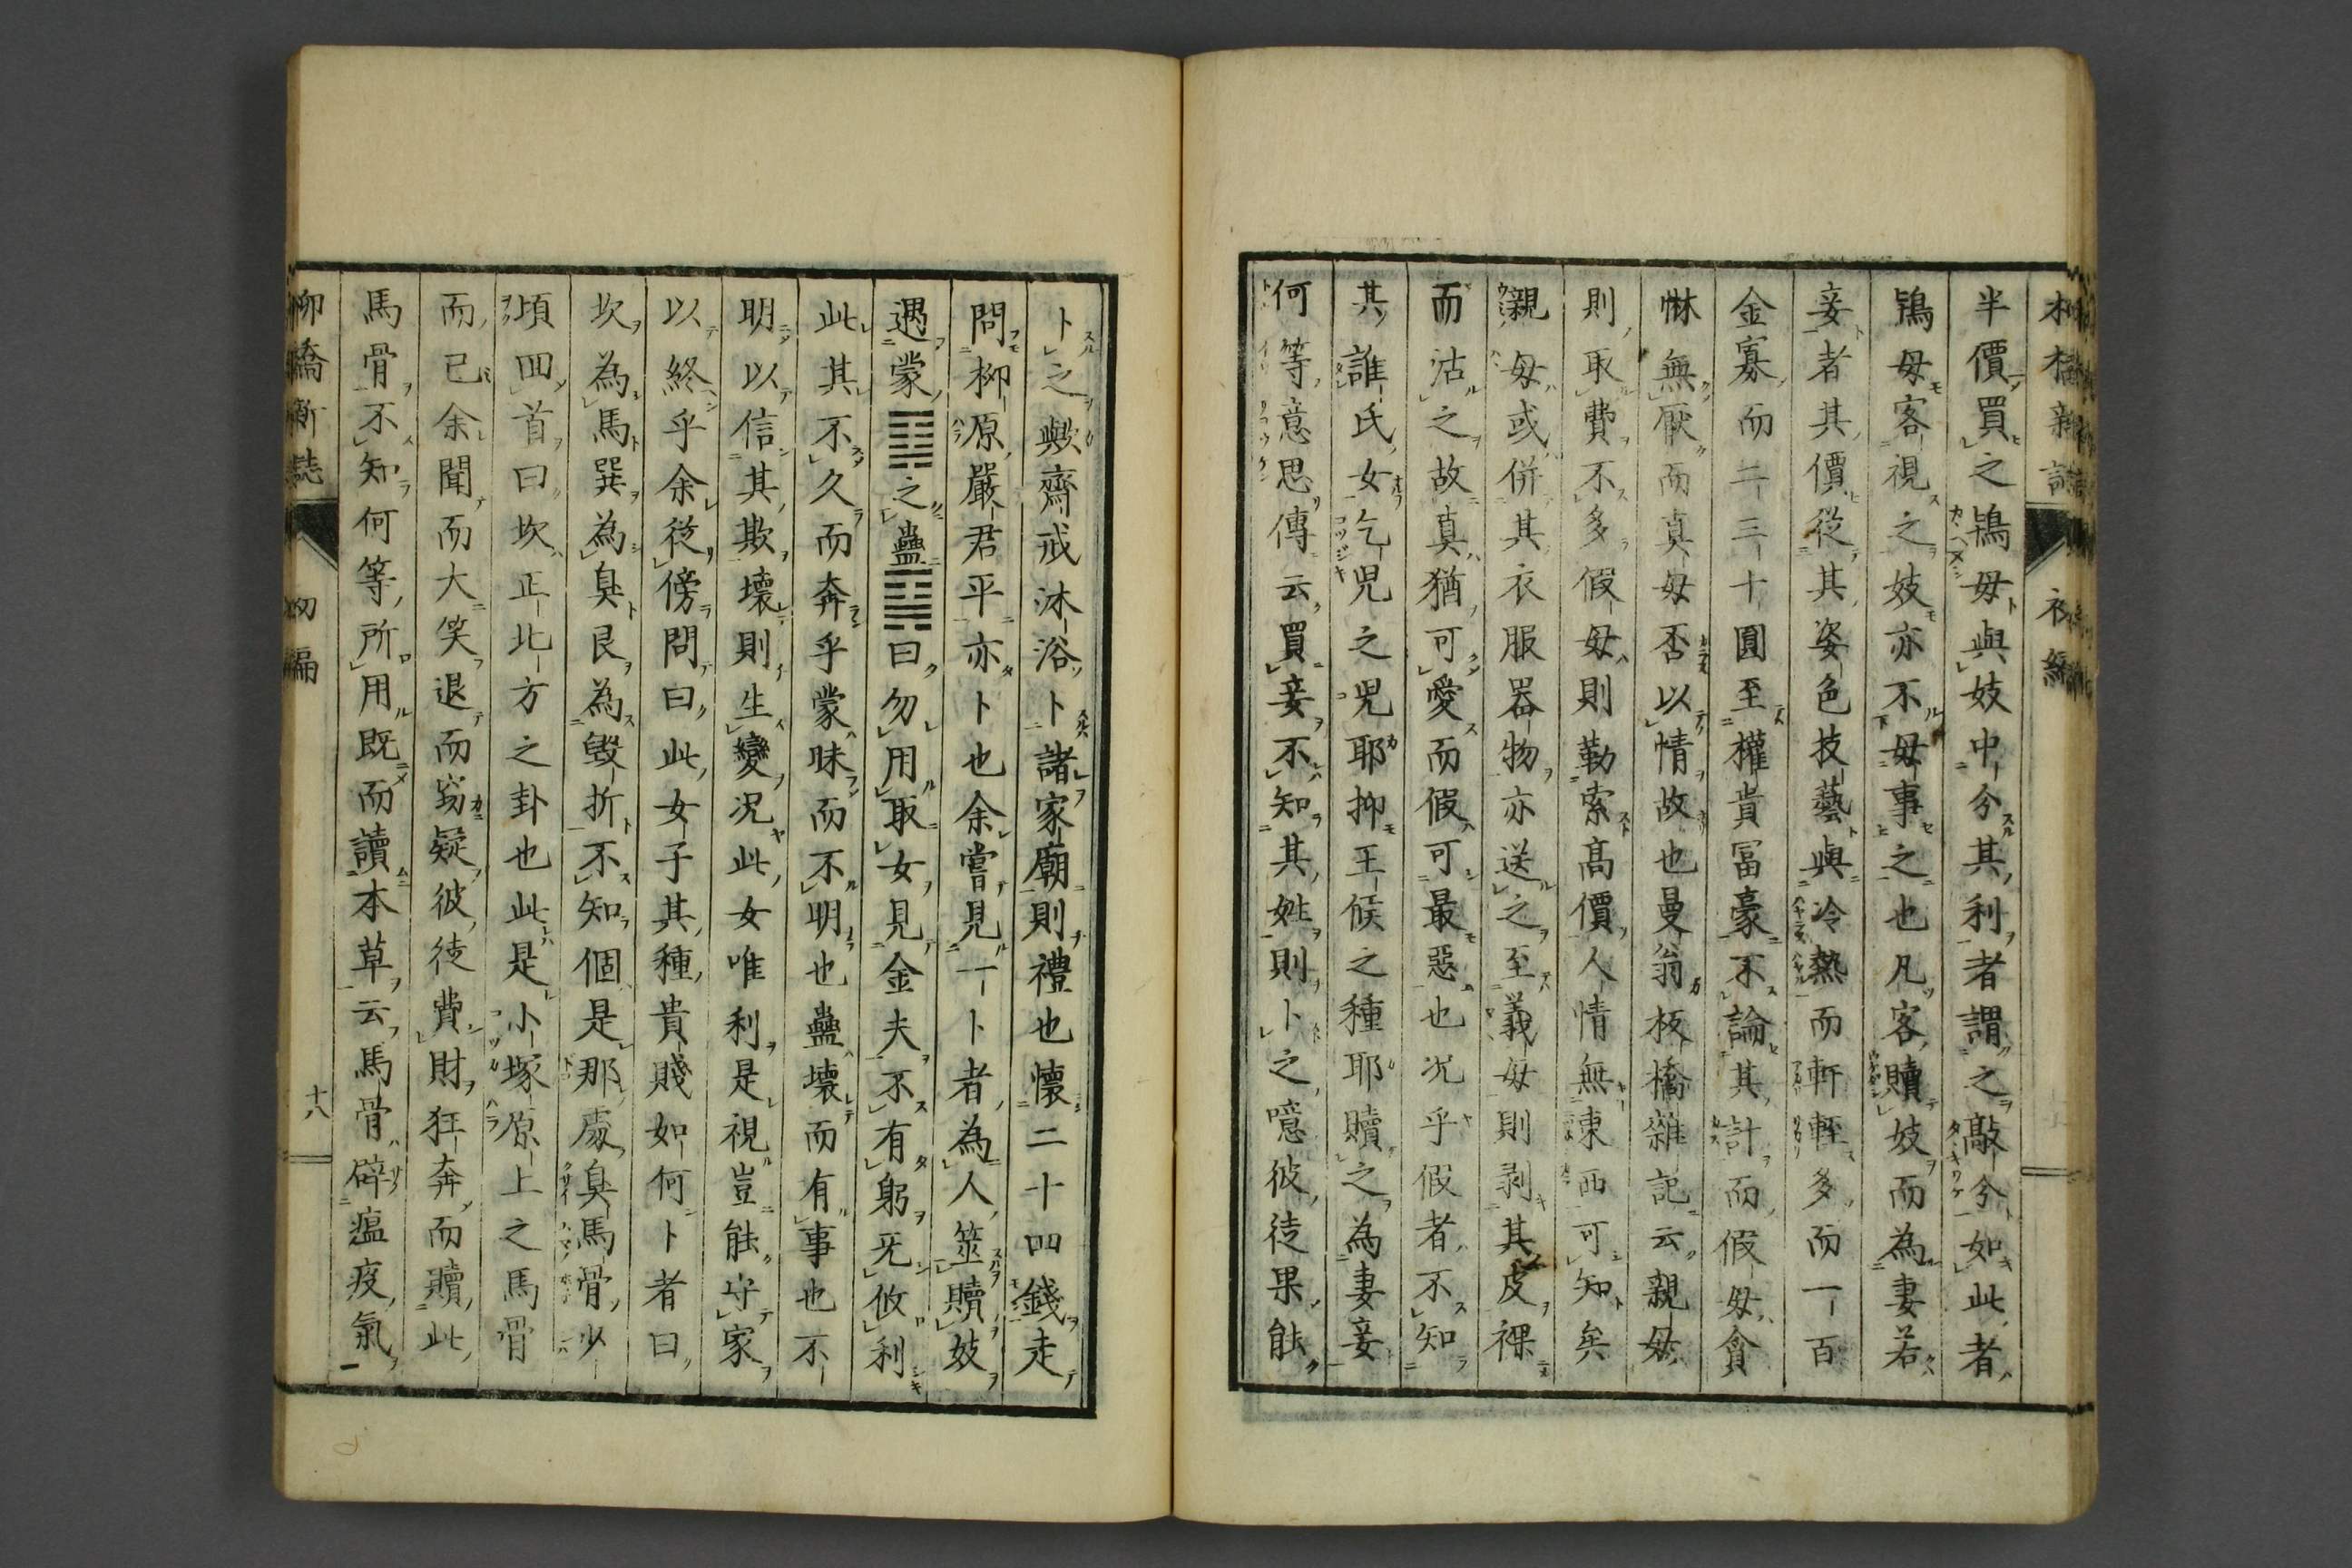 半價買之鴇母與妓中分其利者謂之敲分如此者
鴇母客視之妓亦不母事之也凡客贖妓而為妻若
妾者其價從其姿色技藝與冷熱而軒輊多而一百
金寡而二三十圓至權貴冨豪不論其計而假母貪
惏無厭而真母否以情故也曼翁板橋雜記云親母
則取費不多假母則勒索高價人情無東西可知矣
親母或併其衣服器物亦送之至義母則剥其皮裸
而沽之故真猶可愛而假可最惡也况乎假者不知
其誰氏女乞兒之兒耶抑王侯之種耶贖之為妻妾
何等意思傳云買妾不知其姓則卜之噫彼徒果能
卜之歟齋戒沐浴卜諸家廟則禮也懷二十四錢走
問柳原嚴君平亦卜也余嘗見一卜者為人筮贖妓
遇蒙䷃之蠱䷑曰勿用取女見金夫不有躬旡攸利
此其不久而奔乎蒙昧而不明也蠱壊而有事也不
明以信其欺壊則生變况此女唯利是視豈能守家
以終乎余從傍問曰此女子其種貴賤如何卜者曰
坎為馬巽為臭艮為毀折不知個是那處臭馬骨少
頃回首曰坎正北方之卦也此是小塚原上之馬骨
而已余聞而大笑退而窈疑彼徒費財狂奔而贖此
馬骨不知何等所用既而讀本草云馬骨辟瘟疫氣
柳橋新誌
初編
十八